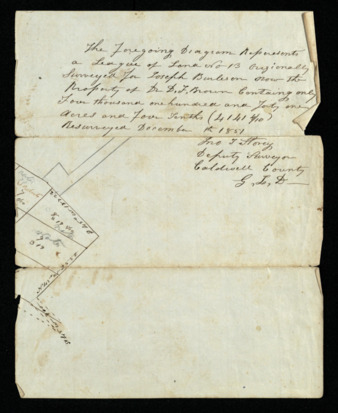 The foregoing Diagram Represents
a League of Land No 13 Originally
Surveyed for Joseph Burleson Now the
Property of Dr. D. F. Brown Containg only
Four thousand one hundred and forty one
Acres and four Tenths (4141 4/10)
Resurveyed December th 1851
Jno T Storey
Deputy Surveyor
Caldwell County
G. L. D